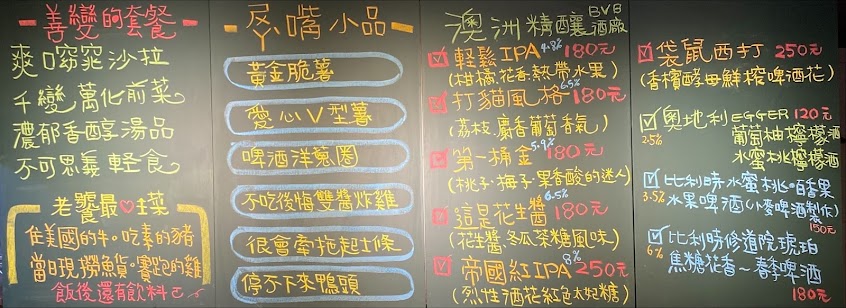 善變的套餐
爽口窈窕沙拉
千變萬化前菜
濃郁香醇湯品
不可思義輕食
老饕最♡主菜
住美國的牛。吃素的豬
當日現撈魚貨。賽跑的雞
飯後還有飲料
嘴小品
黃金脆薯
愛心V型薯
啤酒洋蔥圈
不吃後悔雙醬炸雞
很會牽拖起士條
停不下來鴨頭
澳洲精釀酒廠 BVB
輕鬆IPA 4.8% 180元
(柑橘.花香.熱帶水果)
打貓風格 6.5% 180元
(荔枝.麝香葡萄香氣)
第一桶金 5.9% 180元
(桃子.梅子.果香酸的迷人)
這是花生醬 6.5% 180元
(花生醬.冬瓜茶糖風味)
帝國紅IPA 8% 250元
(烈性酒花紅色太妃糖)
袋鼠西打 250元
(香檳酵母鮮榨啤酒花)
奧地利EGGER 120元
2.5% 葡萄柚檸檬酒
水蜜桃檸檬酒
比利時水蜜桃。百香果
3.5% 水果啤酒(小麥啤酒製作)
150元
比利時修道院琥珀
6% 焦糖花香~春季啤酒
180元